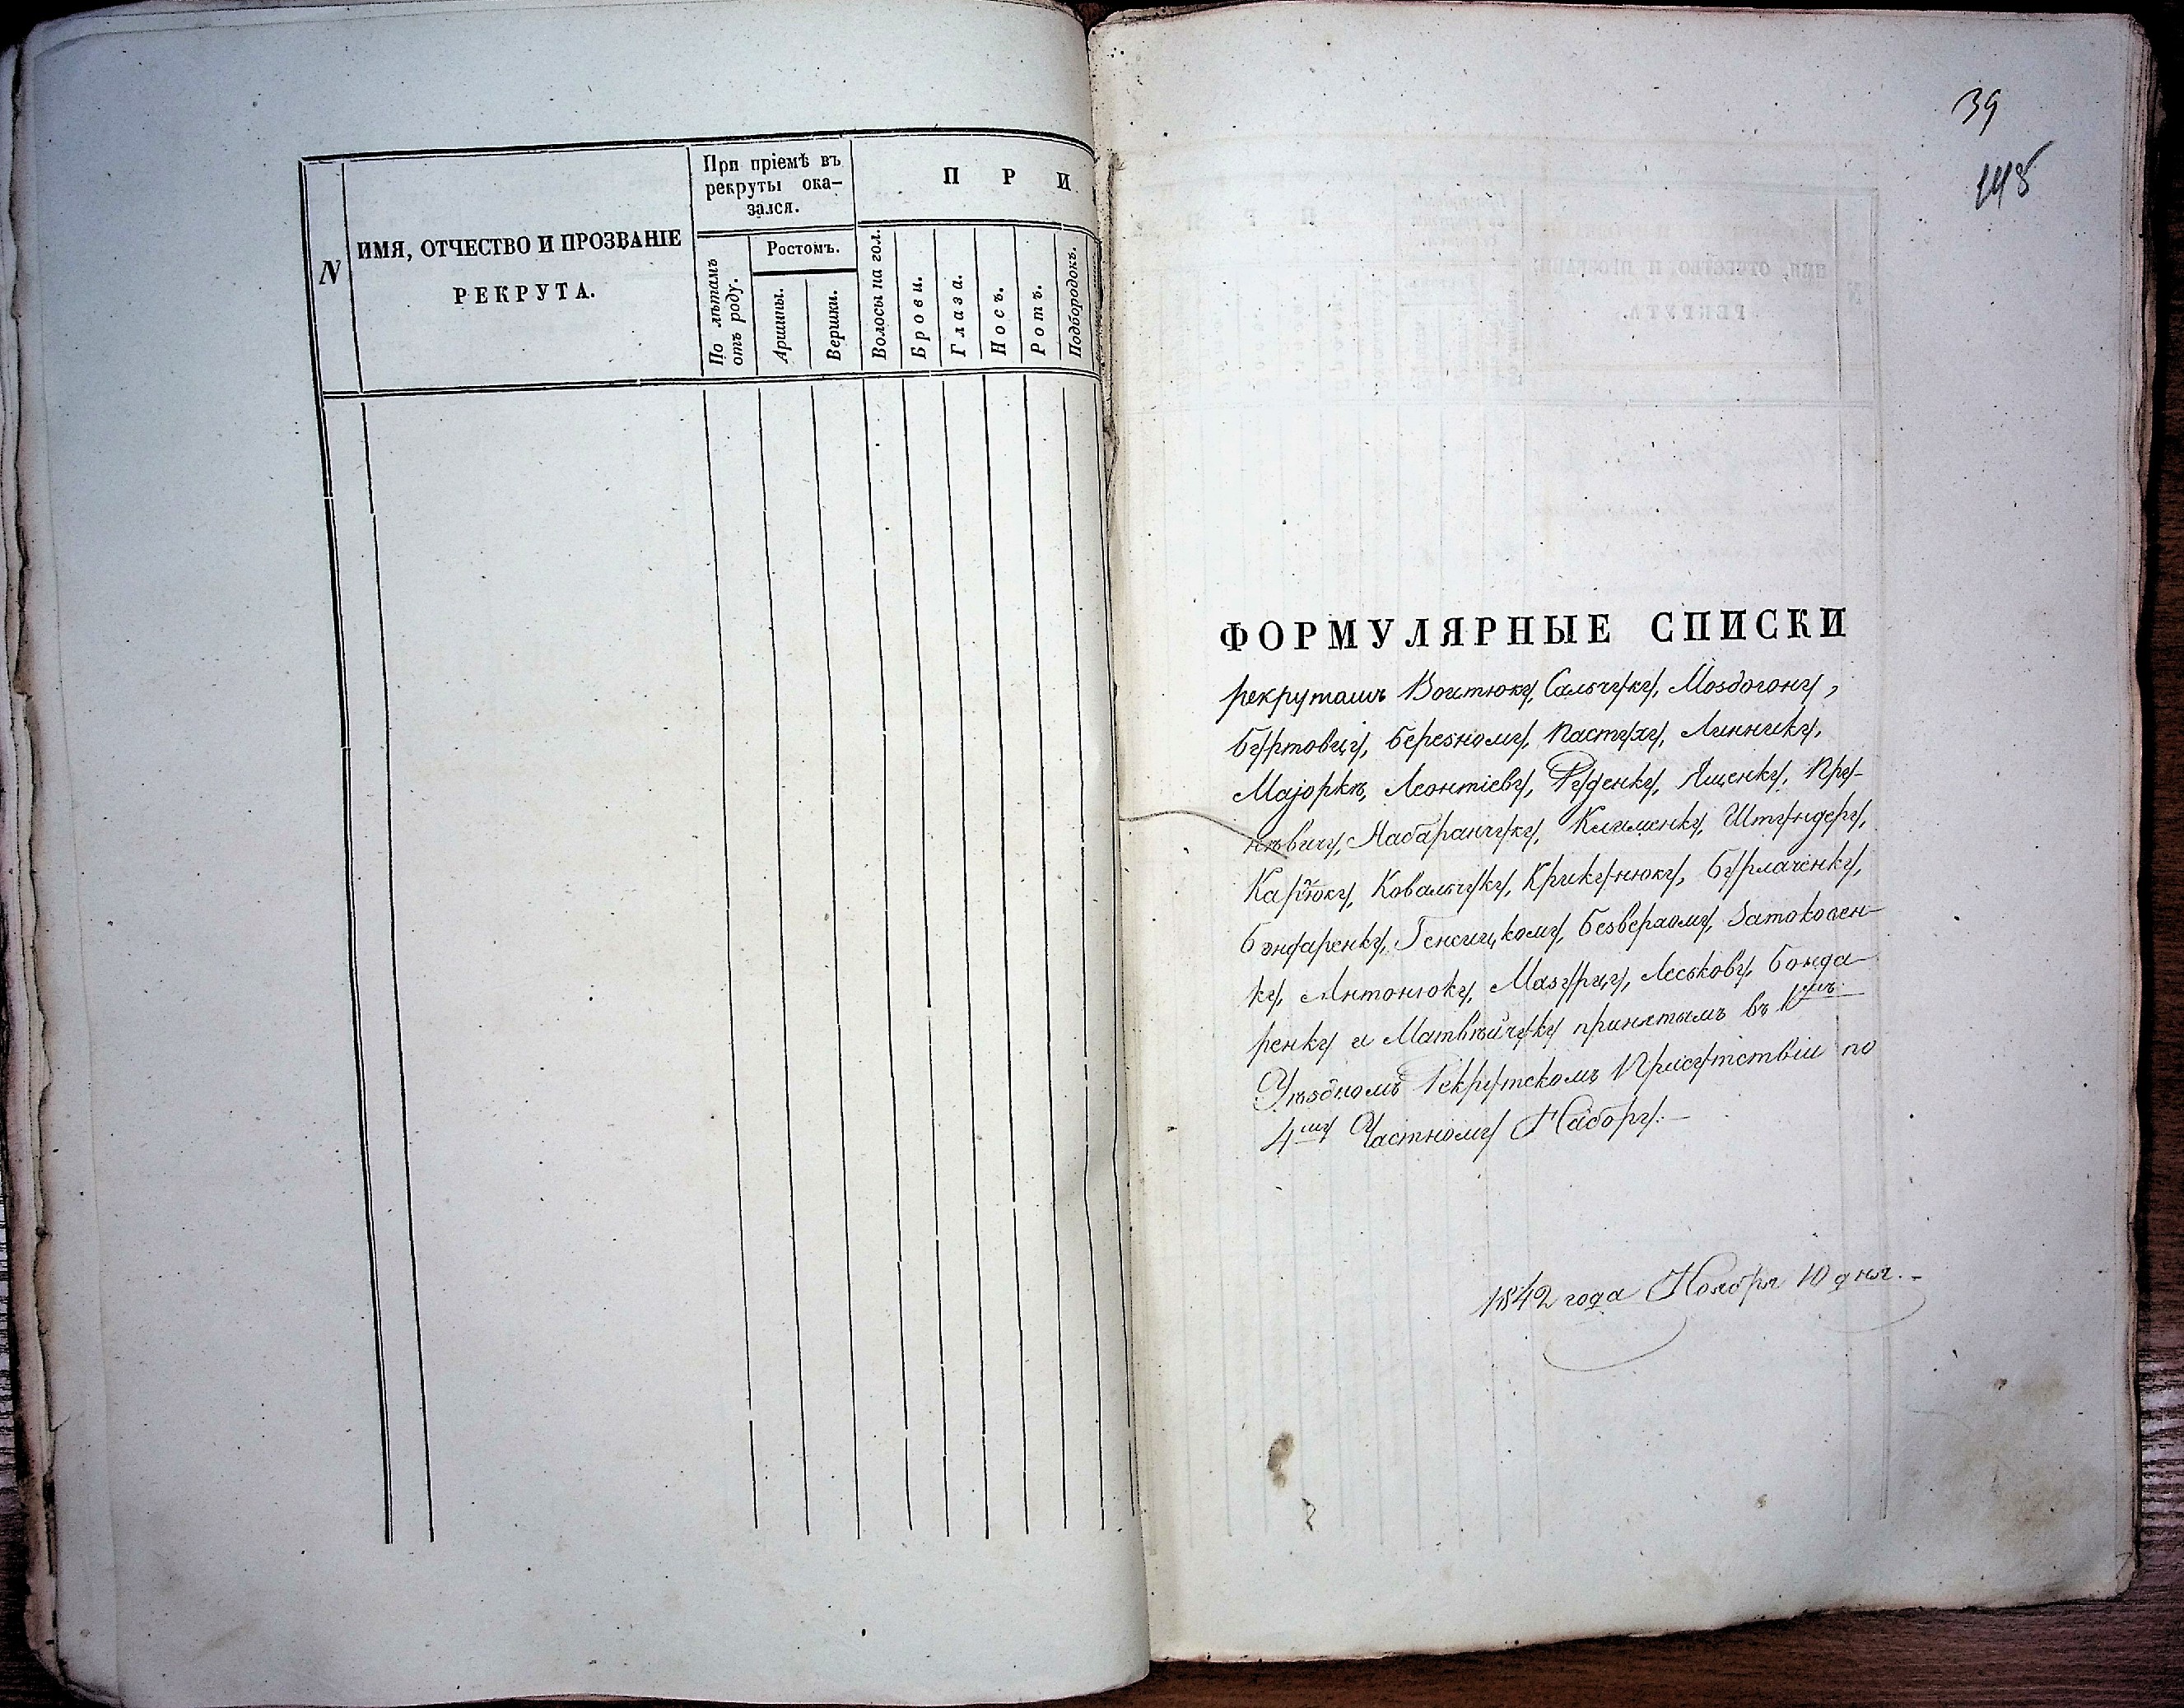 N
ИМЯ, ОТЧЕСТВО И ПРОЗВАНІЕ
РЕКРУТА.
При пріемѣ въ
рекруты ока-
зался.
По лѣтамъ
отъ роду.
Ростомъ.
Аршины.
Вершки.
П Р И
Волосы на гол.
Брови.
Глаза.
Носъ.
Ротъ.
Подбородокъ.
39
148
ФОРМУЛЯРНЫЕ СПИСКИ
рекрутамъ Воитюку, Сальчуку, Моздогону,
Буртовцу, Березному, Пастуху, Линнику,
Маіоркѣ, Леонтіеву, Руденку, Ященку, Пру-
нѣвичу, Набаранчуку, Клименку, Штундеру,
Ковальчуку, Крикунюку, Бурлаченку,
Бондаренку, Генсицкому, Безверхому, Затоковен-
ку, Антонюку, Мазурцу, Леськову, Бонда-
ренку и Матвѣйчуку принятымъ въ
Уѣздномъ Рекрутскомъ Присутствіи по
4му Частному Набору.—
1842 года Ноября 10 дня.-